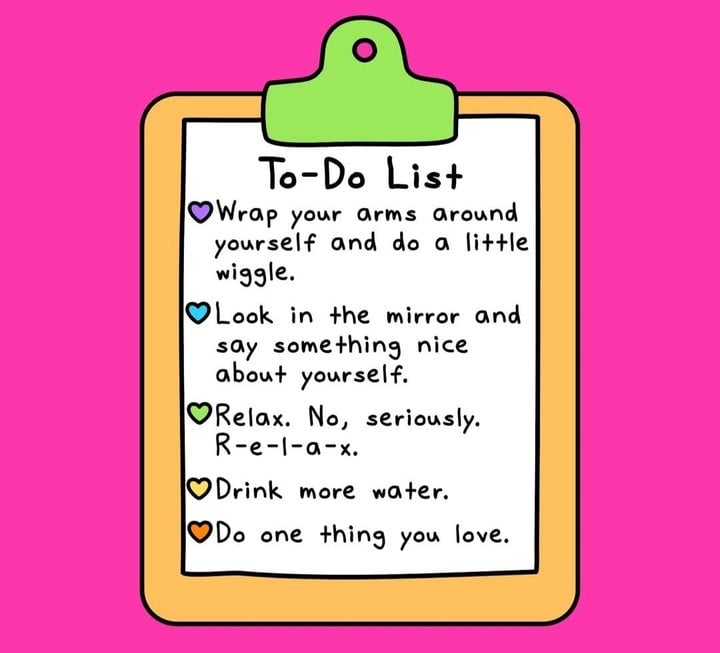 To-Do List
Wrap your arms around
yourself and do a little
wiggle.
Look in the mirror and
say something nice
about yourself.
Relax. No, seriously.
R-e-l-a-x.
Drink more water.
Do one thing you love.